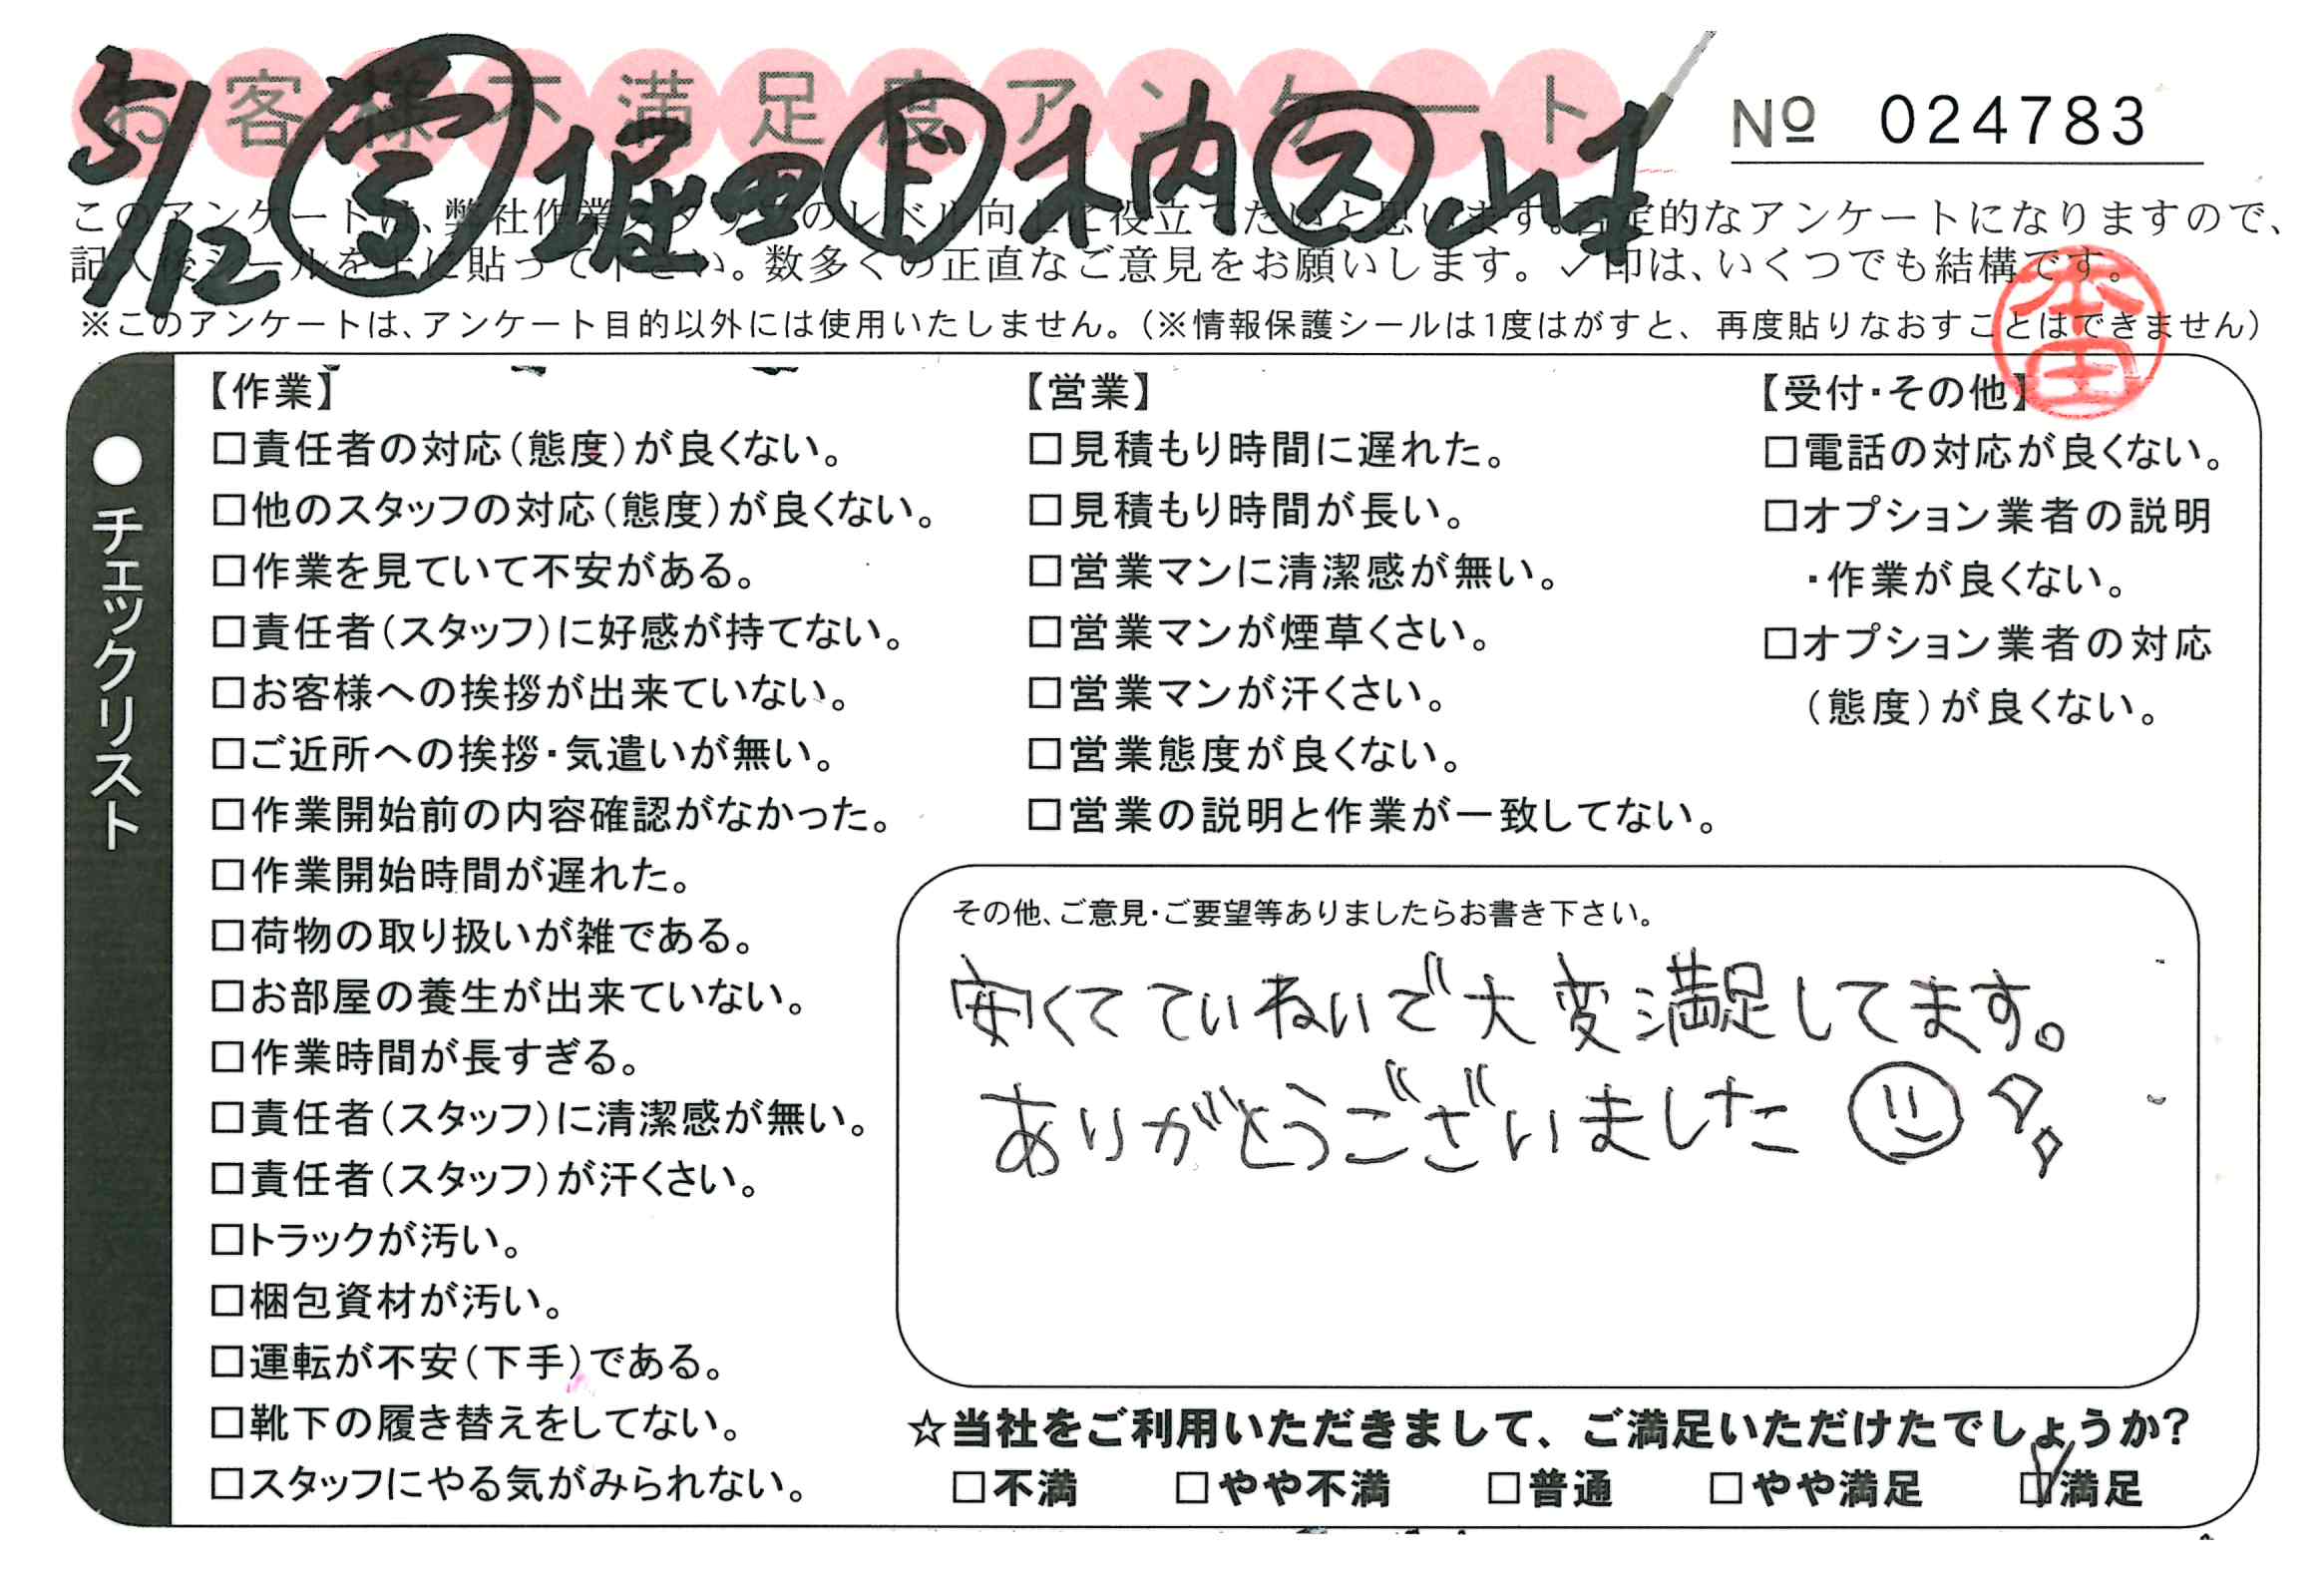 お客様不満足度アンケート
№ 024783
5/12 営 堀田 ド 木内 ス 山本
このアンケートは、弊社作業スタッフのレベル向上に役立てたいと思います。否定的なアンケートになりますので、
記入後シールを上に貼って下さい。数多くの正直なご意見をお願いします。✓印は、いくつでも結構です。
※このアンケートは、アンケート目的以外には使用いたしません。(※情報保護シールは1度はがすと、再度貼りなおすことはできません)
本田
●チェックリスト
【作業】
□責任者の対応(態度)が良くない。
□他のスタッフの対応(態度)が良くない。
□作業を見ていて不安がある。
□責任者(スタッフ)に好感が持てない。
□お客様への挨拶が出来ていない。
□ご近所への挨拶・気遣いが無い。
□作業開始前の内容確認がなかった。
□作業開始時間が遅れた。
□荷物の取り扱いが雑である。
□お部屋の養生が出来ていない。
□作業時間が長すぎる。
□責任者(スタッフ)に清潔感が無い。
□責任者(スタッフ)が汗くさい。
□トラックが汚い。
□梱包資材が汚い。
□運転が不安(下手)である。
□靴下の履き替えをしてない。
□スタッフにやる気がみられない。
【営業】
□見積もり時間に遅れた。
□見積もり時間が長い。
□営業マンに清潔感が無い。
□営業マンが煙草くさい。
□営業マンが汗くさい。
□営業態度が良くない。
□営業の説明と作業が一致してない。
【受付・その他】
□電話の対応が良くない。
□オプション業者の説明
・作業が良くない。
□オプション業者の対応
(態度)が良くない。
その他、ご意見・ご要望等ありましたらお書き下さい。
安くてていねいで大変満足してます。
ありがとうございました
☆当社をご利用いただきまして、ご満足いただけたでしょうか?
□不満 □やや不満 □普通 □やや満足 ☑満足